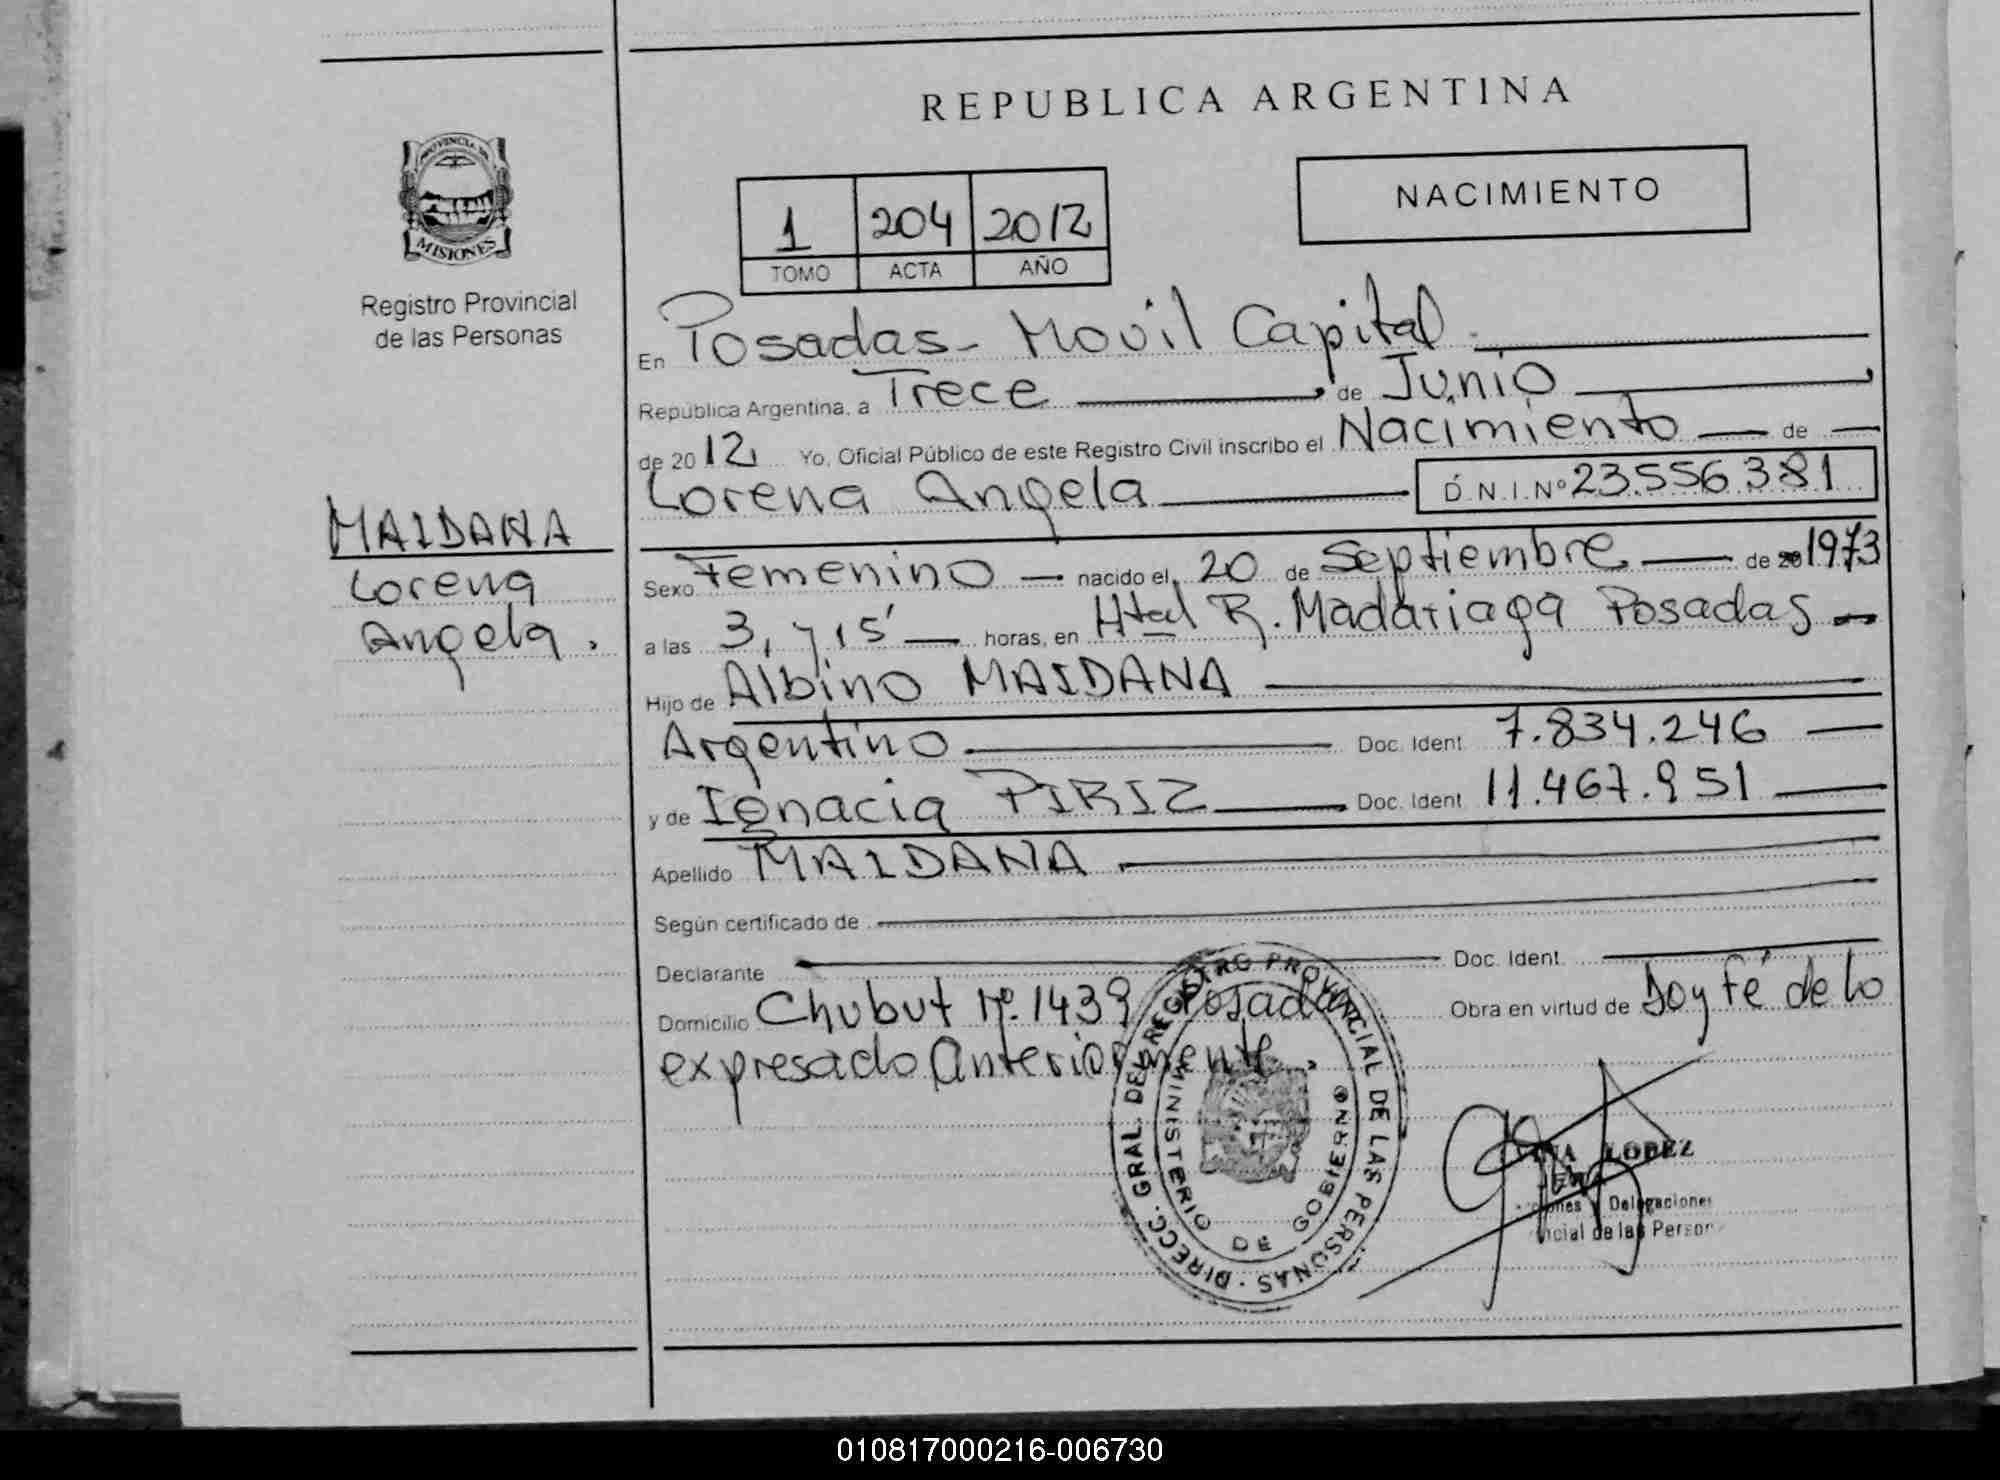 REPUBLICA ARGENTINA
PROVINCIA DE
MISIONES
Registro Provincial
de las Personas
1 204 2012
TOMO ACTA AÑO
NACIMIENTO
En Posadas - Movil Capital.
República Argentina, a Trece de Junio
de 2012 Yo, Oficial Público de este Registro Civil inscribo el Nacimiento de
Lorena Angela D.N.I. Nº 23.556.381
MAIDANA
Lorena
Angela.
Sexo Femenino nacido el 20 de Septiembre de 20 1973
a las 3, y 15' horas, en Htal R. Madariaga Posadas
Hijo de Albino MAIDANA
Argentino Doc. Ident. 7.834.246
y de Ignacia PIRIZ Doc. Ident. 11.467.951
Apellido MAIDANA
Según certificado de
Declarante Doc. Ident.
Domicilio Chubut Nº. 1439 Posadas Obra en virtud de Doy fé de lo
expresado Anteriormente.
DIRECC. GRAL. DEL REGISTRO PROVINCIAL DE LAS PERSONAS
MINISTERIO DE GOBIERNO
LOPEZ
Delegaciones
de las Person
010817000216-006730